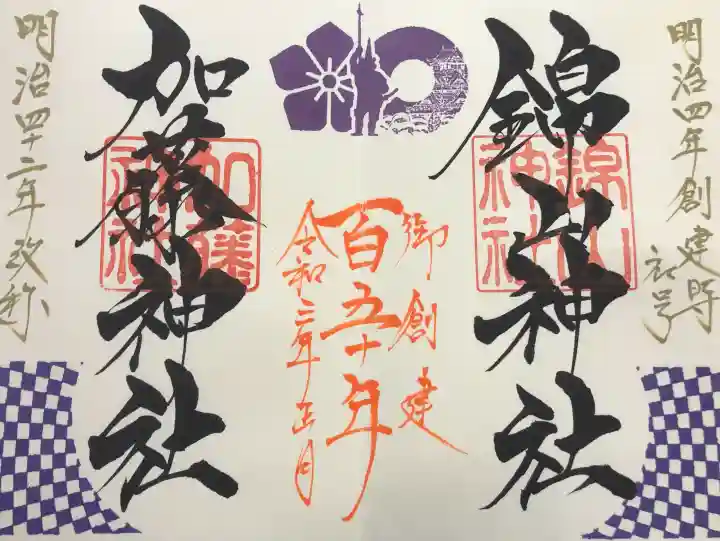 明治四年創建時
社号
錦山神社
錦山
神社
御創建
百五十年
令和三年正月
加藤神社
加藤
神社
明治四十二年改称